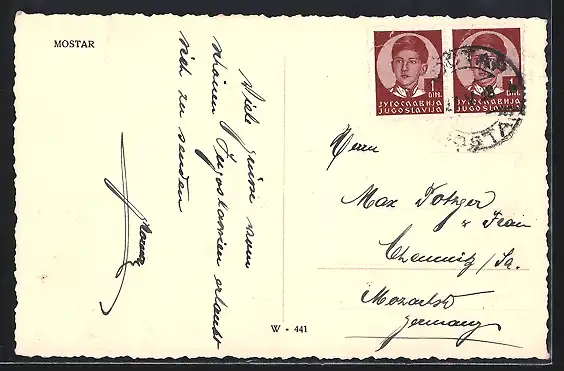 MOSTAR
Viele Grüsse vom
schönen Jugoslavien erlaubt
sich zu senden
1
ДИН.
ЈУГОСЛАВИЈА
JUGOSLAVIJA
1
DIN.
ЈУГОСЛАВИЈА
JUGOSLAVIJA
MOSTAR
Herrn
Max
u. Frau
Chemnitz / Sa.
Mozartstr
Germany
W - 441